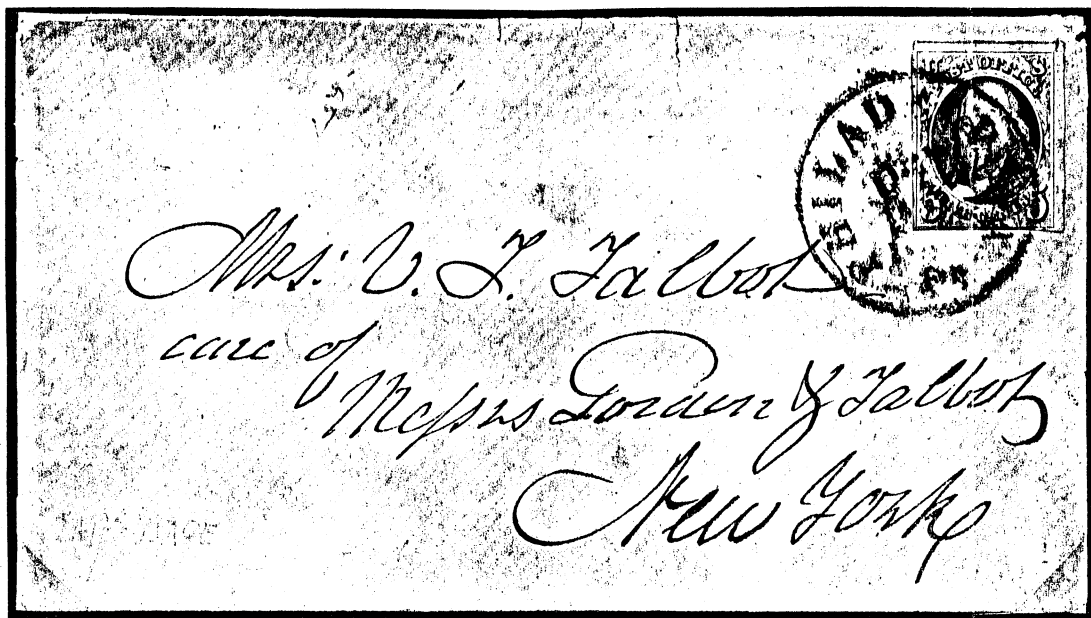 POST OFFICE
PHILAD
Mrs: V. L. Talbot
care of
Messrs & Talbot
New York